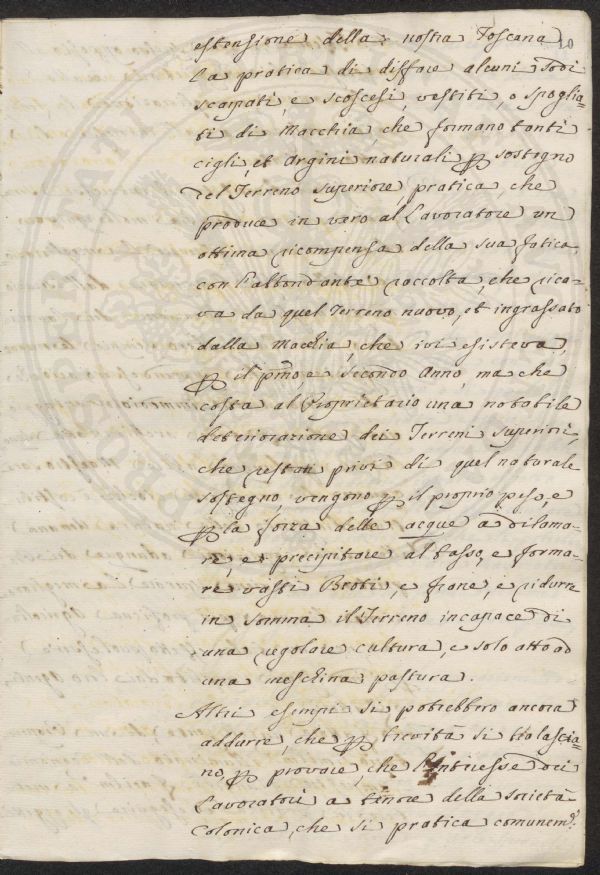 estensione della nostra Toscana 10
la pratica di disfare alcuni Sodi
scarpati, e scoscesi vestiti, o spoglia-
ti di Macchia, che formano tanti
cigli, et Argini naturali p sostegno
del Terreno superiore, pratica, che
produce in vero al Lavoratore un
ottima ricompensa della sua fatica
con l'abbondante raccolta, che rica-
va da quel Terreno nuovo, et ingrassato
dalla Macchia, che ivi esisteva,
p il pmo, e Secondo Anno, ma che
costa al Proprietario una notabile
deteriorazione dei Terreni superiori,
che restati privi di quel naturale
sostegno, vengono p il proprio peso, e
p la forza delle acque a dilama-
re, e precipitare al basso, e forma-
re vasti Botri, e frane, e ridurre
in somma il Terreno incapace di
una regolare cultura, e solo atto ad
una meschina pastura.
Altri esempi si potrebbero ancora
addurre, che p brevità si tralascia-
no, p provare, che l'interesse dei
Lavoratori a tenore della Società
Colonica, che si pratica comunem.e